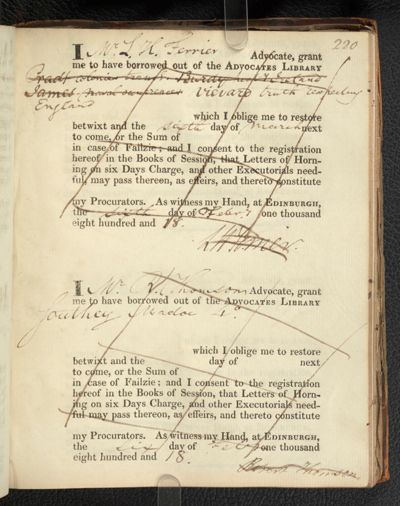 220
I Mr L. H. Ferrier Advocate, grant
me to have borrowed out of the ADVOCATES LIBRARY
James truth respecting
England
which I oblige me to restore
betwixt and the sixth day of March next
to come, or the Sum of
in case of Failzie; and I consent to the registration
hereof in the Books of Session, that Letters of Horn-
ing on six Days Charge, and other Executorials need-
ful, may pass thereon, as effeirs, and thereto constitute
my Procurators. As witness my Hand, at EDINBURGH,
the sixth day of Febr. one thousand
eight hundred and 18.
I Mr Thomson Advocate, grant
me to have borrowed out of the ADVOCATES LIBRARY
Southey Madoc 4o.
which I oblige me to restore
betwixt and the day of next
to come, or the Sum of
in case of Failzie; and I consent to the registration
hereof in the Books of Session, that Letters of Horn-
ing on six Days Charge, and other Executorials need-
ful may pass thereon, as effeirs, and thereto constitute
my Procurators. As witness my Hand, at EDINBURGH,
the six day of one thousand
eight hundred and 18.
Thomson